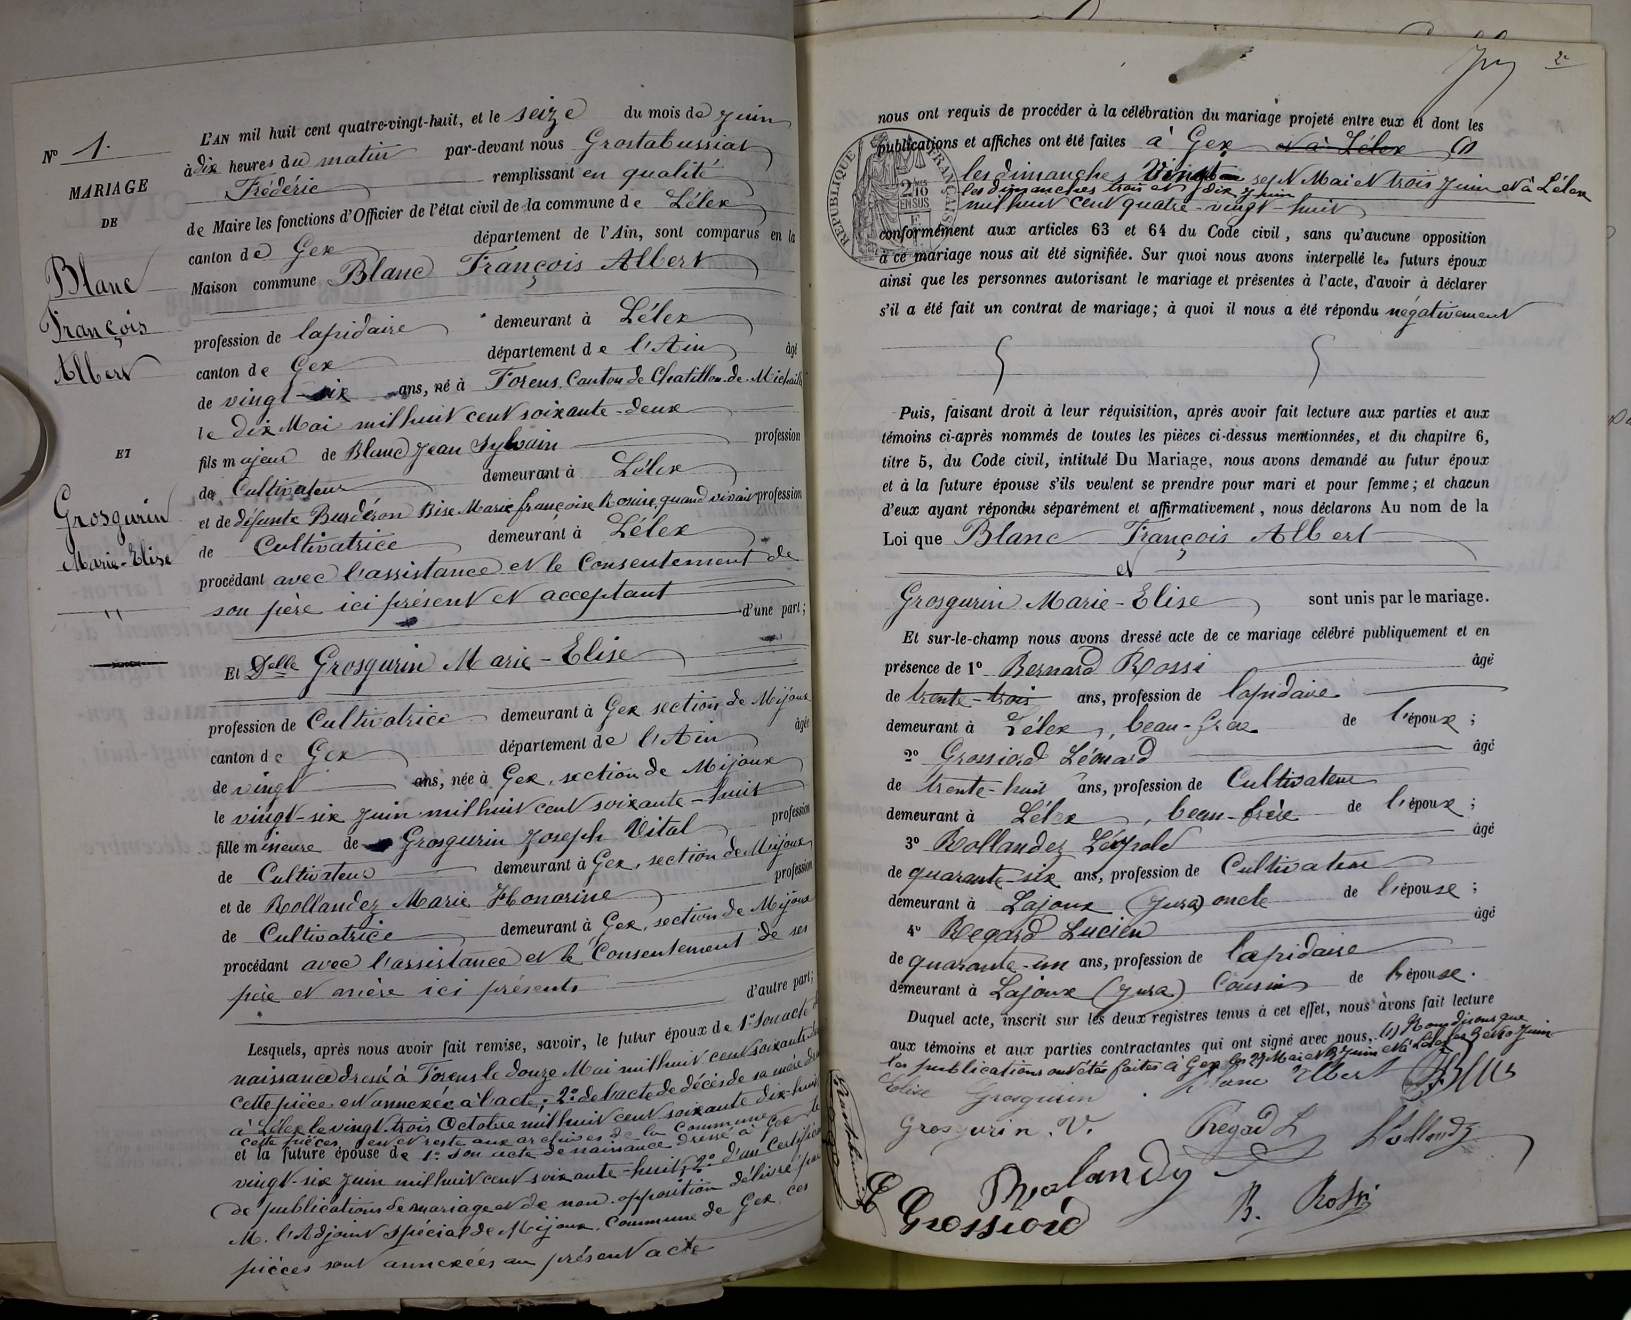 N° 1.
MARIAGE
DE
Blanc
François
Albert
ET
Grosgurin
Marie-Elise
L'AN mil huit cent quatre-vingt-huit, et le seize du mois de juin
à dix heures du matin par-devant nous Grostabussiat
Frédéric remplissant en qualité
de Maire les fonctions d'Officier de l'état civil de la commune de Lélex
canton de Gex département de l'Ain, sont comparus en la
Maison commune Blanc François Albert
profession de lapidaire demeurant à Lélex
canton de Gex département de l'Ain âgé
de vingt-six ans, né à Forens, Canton de Chatillon-de-Michaille
le dix Mai mil huit cent soixante-deux
fils majeur de Blanc Jean Sylvain profession
de Cultivateur demeurant à Lélex
et de défunte Burdéron Bise Marie françoise Rosine, quand vivait profession
de Cultivatrice demeurant à Lélex
procédant avec l'assistance et le Consentement de
son père ici présent et acceptant d'une part;
Et Delle Grosgurin Marie-Elise
profession de Cultivatrice demeurant à Gex section de Mijoux
canton de Gex département de l'Ain âgée
de vingt ans, née à Gex, section de Mijoux
le vingt-six juin mil huit cent soixante-huit
fille mineure de Grosgurin Joseph Vital profession
de Cultivateur demeurant à Gex, section de Mijoux
et de Rollandez Marie Honorine profession
de Cultivatrice demeurant à Gex, section de Mijoux
procédant avec l'assistance et le Consentement de ses
père et mère ici présents d'autre part;
Lesquels, après nous avoir fait remise, savoir, le futur époux de 1° Son acte de
naissance dressé à Forens le douze Mai mil huit cent soixante-deux
cette pièce est annexée à l'acte; 2° de l'acte de décès de sa mère dressé
à Lélex le vingt-trois Octobre mil huit cent soixante dix-huit
cette pièces est et reste aux archives de la Commune
et la future épouse de 1° Son acte de naissance dressé à Gex le
vingt-six juin mil huit cent soixante-huit; 2° d'un Certificat
de publications de mariage et de non-opposition délivré par
M. l'Adjoint spécial de Mijoux, Commune de Gex, ces
pièces sont annexées au présent acte
2e
nous ont requis de procéder à la célébration du mariage projeté entre eux et dont les
publications et affiches ont été faites à Gex et à Lélex (1)
les dimanches Vingt-sept Mai et trois juin et à Lélex
les dimanches trois et dix juin
mil huit cent quatre-vingt-huit
conformément aux articles 63 et 64 du Code civil, sans qu'aucune opposition
à ce mariage nous ait été signifiée. Sur quoi nous avons interpellé les futurs époux
ainsi que les personnes autorisant le mariage et présentes à l'acte, d'avoir à déclarer
s'il a été fait un contrat de mariage; à quoi il nous a été répondu négativement
Puis, faisant droit à leur réquisition, après avoir fait lecture aux parties et aux
témoins ci-après nommés de toutes les pièces ci-dessus mentionnées, et du chapitre 6,
titre 5, du Code civil, intitulé Du Mariage, nous avons demandé au futur époux
et à la future épouse s'ils veulent se prendre pour mari et pour femme; et chacun
d'eux ayant répondu séparément et affirmativement, nous déclarons Au nom de la
Loi que Blanc François Albert
et
Grosgurin Marie-Elise sont unis par le mariage.
Et sur-le-champ nous avons dressé acte de ce mariage célébré publiquement et en
présence de 1° Bernard Rossi âgé
de trente-trois ans, profession de lapidaire
demeurant à Lélex, beau-frère de l'époux;
2° Grossiord Léonard âgé
de trente-huit ans, profession de Cultivateur
demeurant à Lélex, beau-frère de l'époux;
3° Rollandez Léopold âgé
de quarante-six ans, profession de Cultivateur
demeurant à Lajoux (Jura) oncle de l'épouse;
4° Regard Lucien âgé
de quarante-un ans, profession de lapidaire
demeurant à Lajoux (Jura) Cousin de l'épouse.
Duquel acte, inscrit sur les deux registres tenus à cet effet, nous avons fait lecture
aux témoins et aux parties contractantes qui ont signé avec nous. (1) Nous disons que
les publications ont été faites à Gex les 27 Mai et 3 Juin et à Lélex les 3 et 10 Juin
Elise Grosgurin Blanc Albert
Grosgurin. V. Régad L Rollandz
Rolandz
Grossiord B. Rossi
RÉPUBLIQUE FRANÇAISE